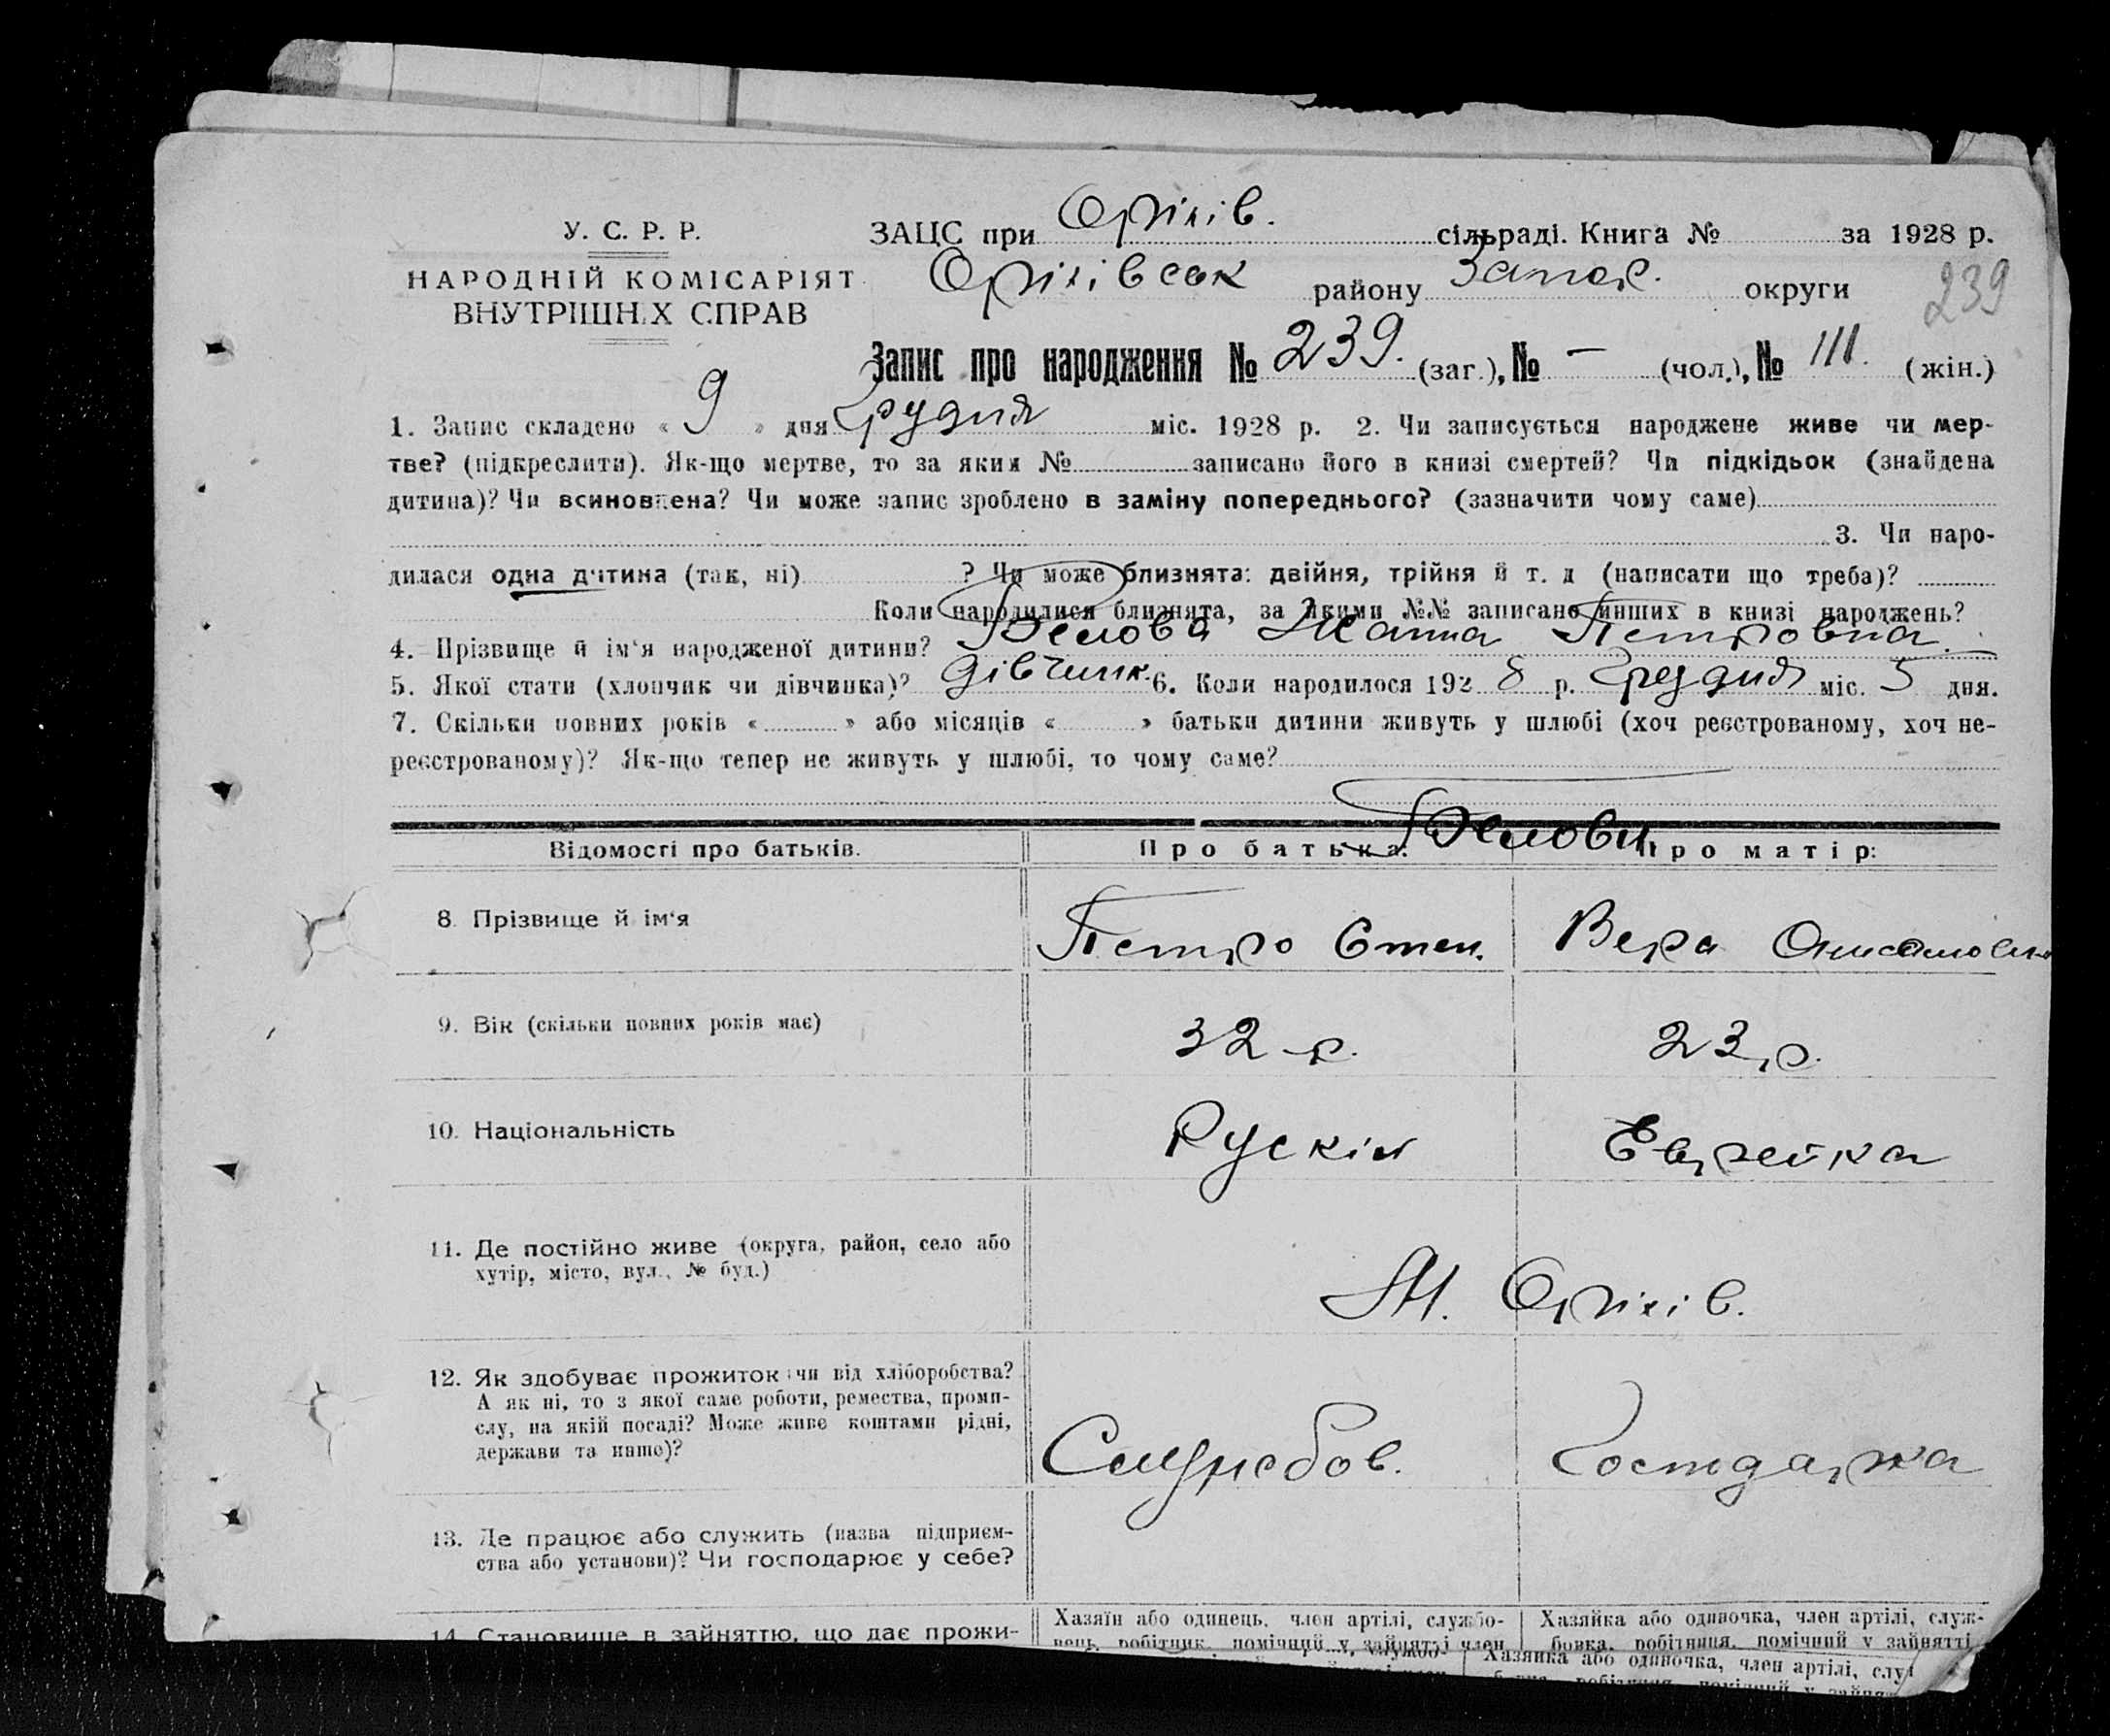 У. С. Р. Р.
НАРОДНІЙ КОМІСАРІЯТ
ВНУТРІШНІХ СПРАВ
ЗАЦС при Оріхів. сільраді. Книга № за 1928 р.
Оріхівськ району Запор. округи
239
Запис про народження № 239. (заг.), № — (чол.), № 111. (жін.)
1. Запис складено « 9 » дня Грудня міс. 1928 р. 2. Чи записується народжене живе чи мер-
тве? (підкреслити). Як-що мертве, то за яким № записано його в книзі смертей? Чи підкідьок (знайдена
дитина)? Чи всиновлена? Чи може запис зроблено в заміну попереднього? (зазначити чому саме)
3. Чи наро-
дилася одна дитина (так, ні) ? Чи може близнята: двійня, трійня й т. д (написати що треба)?
Коли народилися близнята, за якими №№ записано инших в книзі народжень?
4. Прізвище й ім‘я народженої дитини? Белова Жанна Петровна.
5. Якої стати (хлопчик чи дівчинка)? дівчинк. 6. Коли народилося 192 8 р. Грудня міс. 5 дня.
7. Скільки повних років « » або місяців « » батьки дитини живуть у шлюбі (хоч реєстрованому, хоч не-
реєстрованому)? Як-що тепер не живуть у шлюбі, то чому саме?
Белови
Відомості про батьків. Про батька: Про матір:
8. Прізвище й ім‘я Петро Степ. Вера
9. Вік (скільки повних років має) 32 р. 23 р.
10. Національність Рускій Еврейка
11. Де постійно живе (округа, район, село або
хутір, місто, вул., № буд.)
М. Оріхів.
12. Як здобуває прожиток: чи від хліборобства?
А як ні, то з якої саме роботи, ремества, проми-
слу, на якій посаді? Може живе коштами рідні,
держави та инше)?
13. Де працює або служить (назва підприєм-
ства або установи)? Чи господарює у себе?
14. Становище в зайняттю, що дає прожи-
Хазяїн або одинець, член артілі, службо-
вець, робітник, помічний у зайнятті член
Хазяйка або одиночка, член артілі, служ-
бовка, робітниця, помічний у зайнятті
Хазяйка або одиночка, член артілі, слу